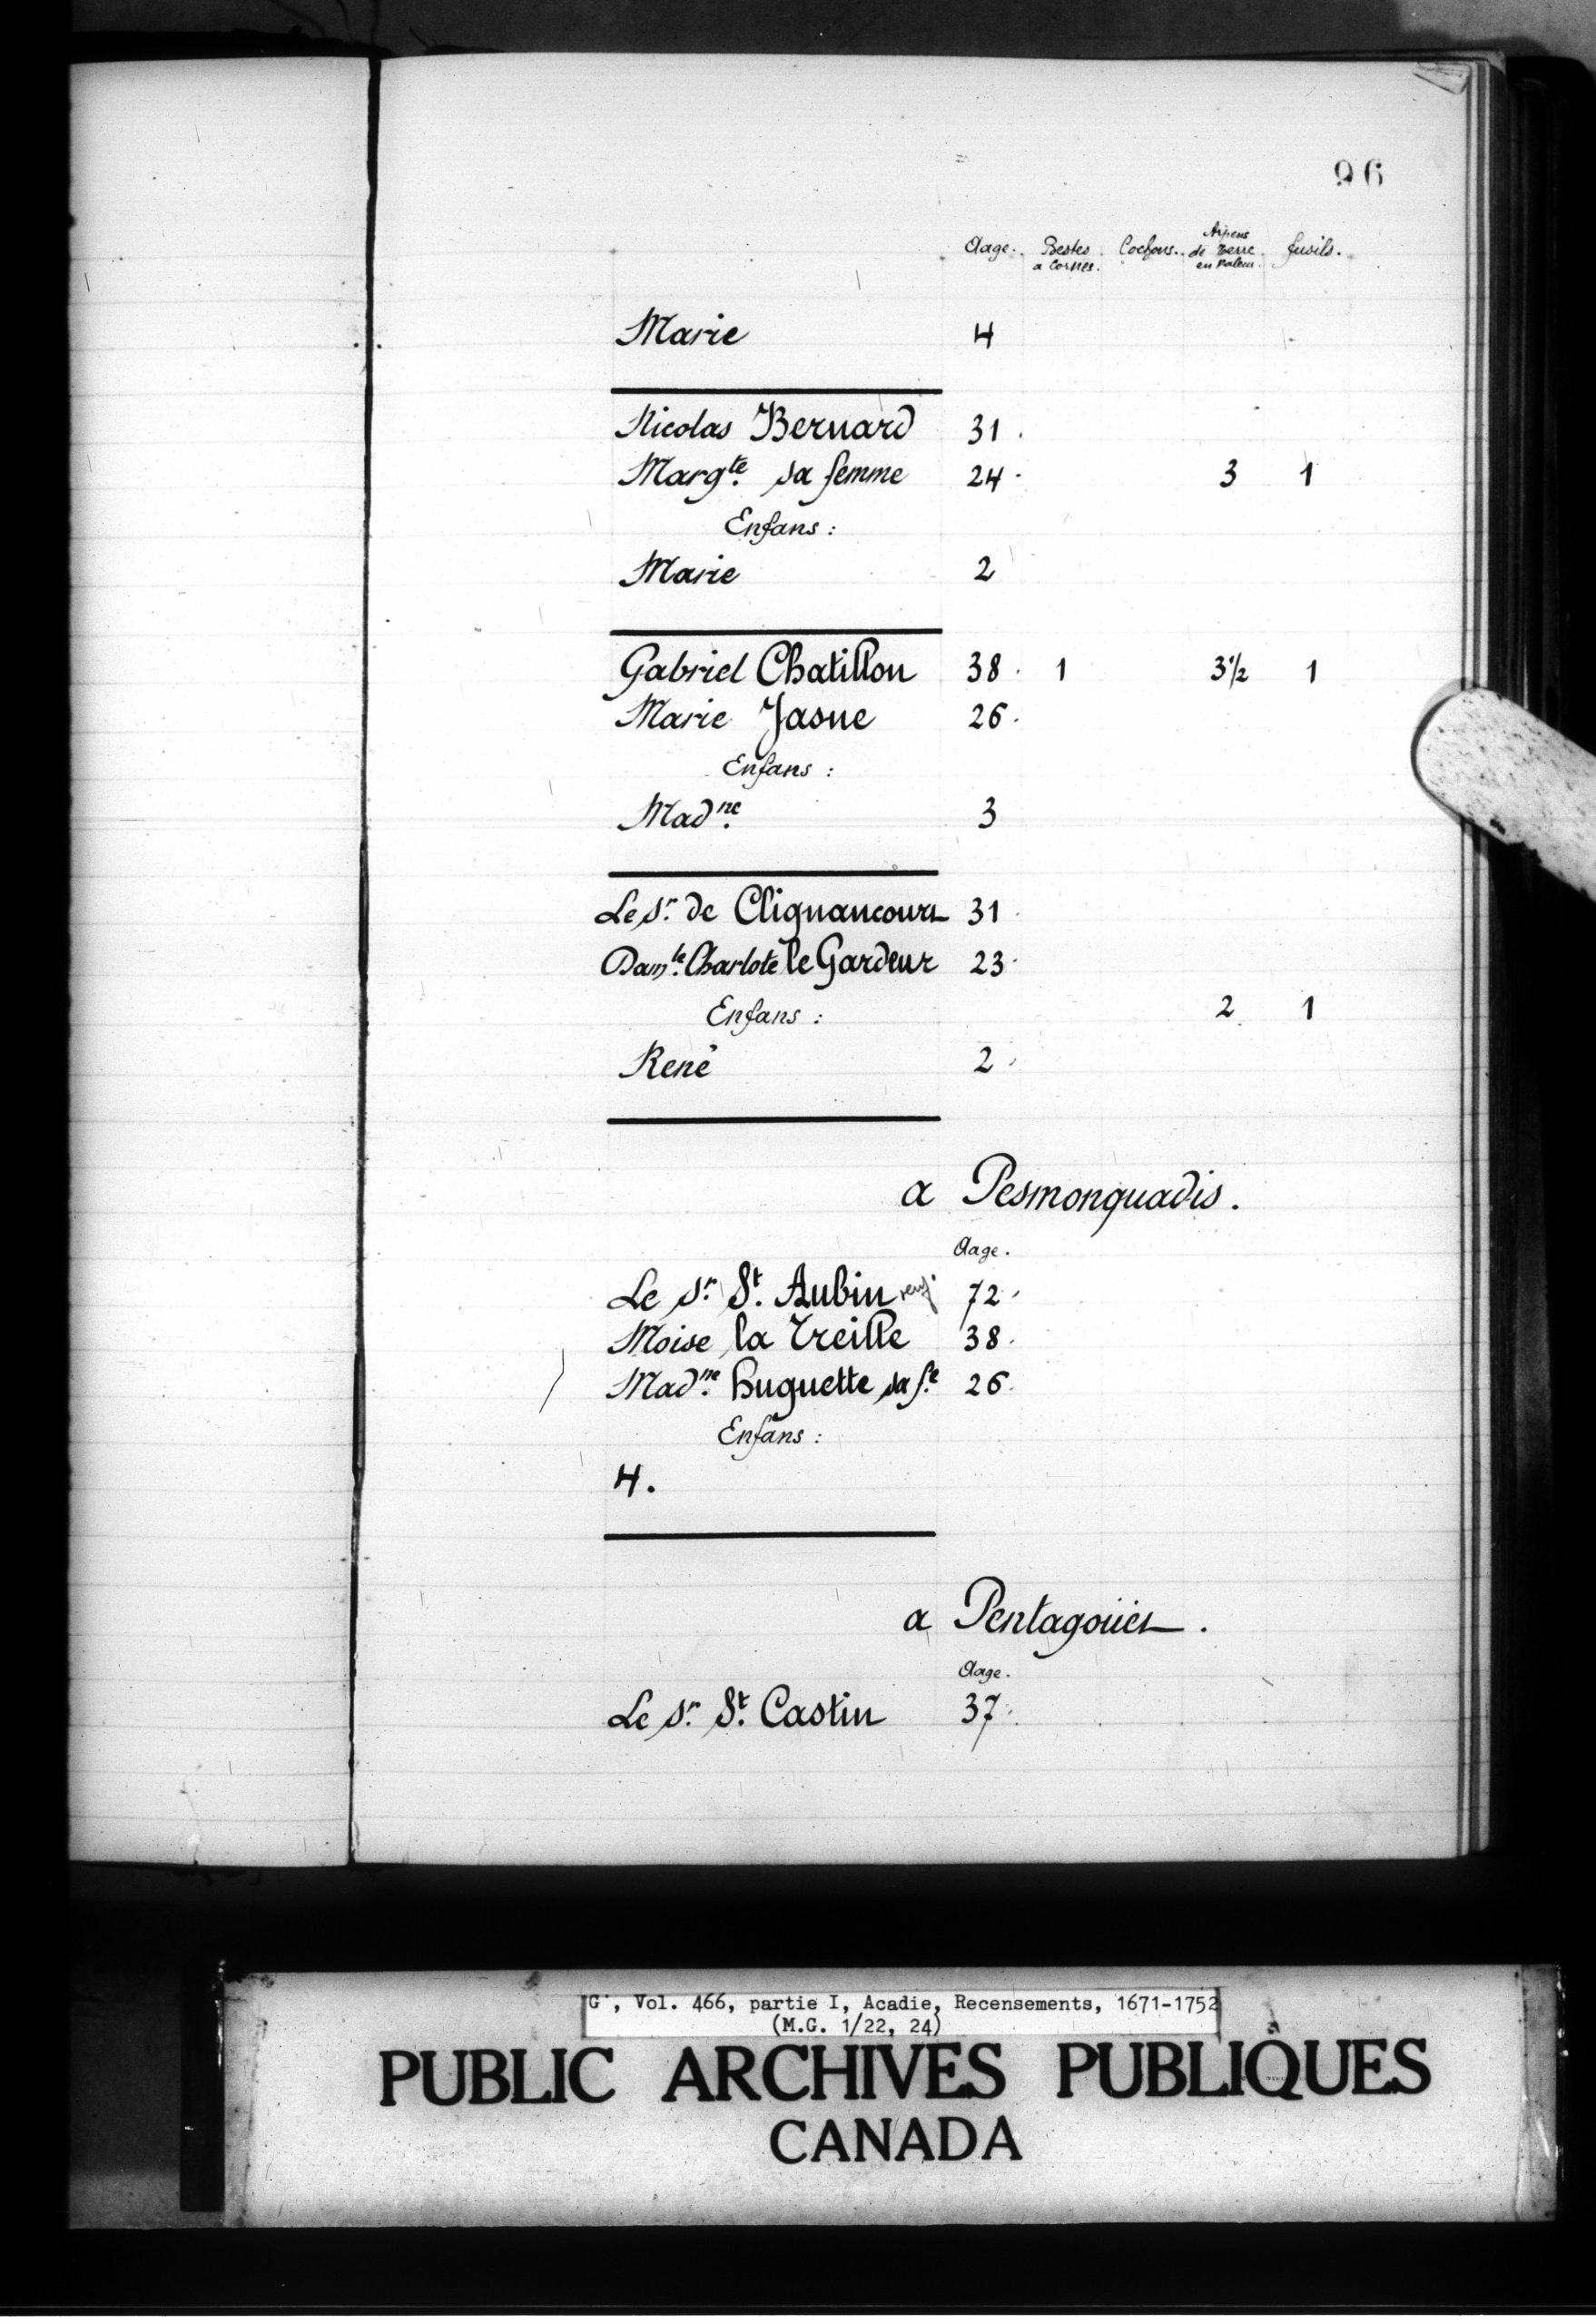 96
Aage. Bestes a Cornes. Cochons. Arpens de Terre en valeur. fusils.
Marie 4
Nicolas Bernard 31.
Margte. sa femme 24. 3 1
Enfans :
Marie 2
Gabriel Chatillon 38. 1 3 1/2 1
Marie Jasne 26.
Enfans :
Madne. 3
Le Sr. de Clignancourt 31.
Damle. Charlote le Gardeur 23.
Enfans : 2 1
René 2.
a Pesmonquadis.
Aage.
Le Sr. St. Aubin 72.
Moise la Treille 38.
Madne. huguette sa fe. 26.
Enfans :
4.
a Pentagoüet.
Aage.
Le Sr. St. Castin 37.
G', Vol. 466, partie I, Acadie, Recensements, 1671-1752
(M.G. 1/22, 24)
PUBLIC ARCHIVES PUBLIQUES
CANADA